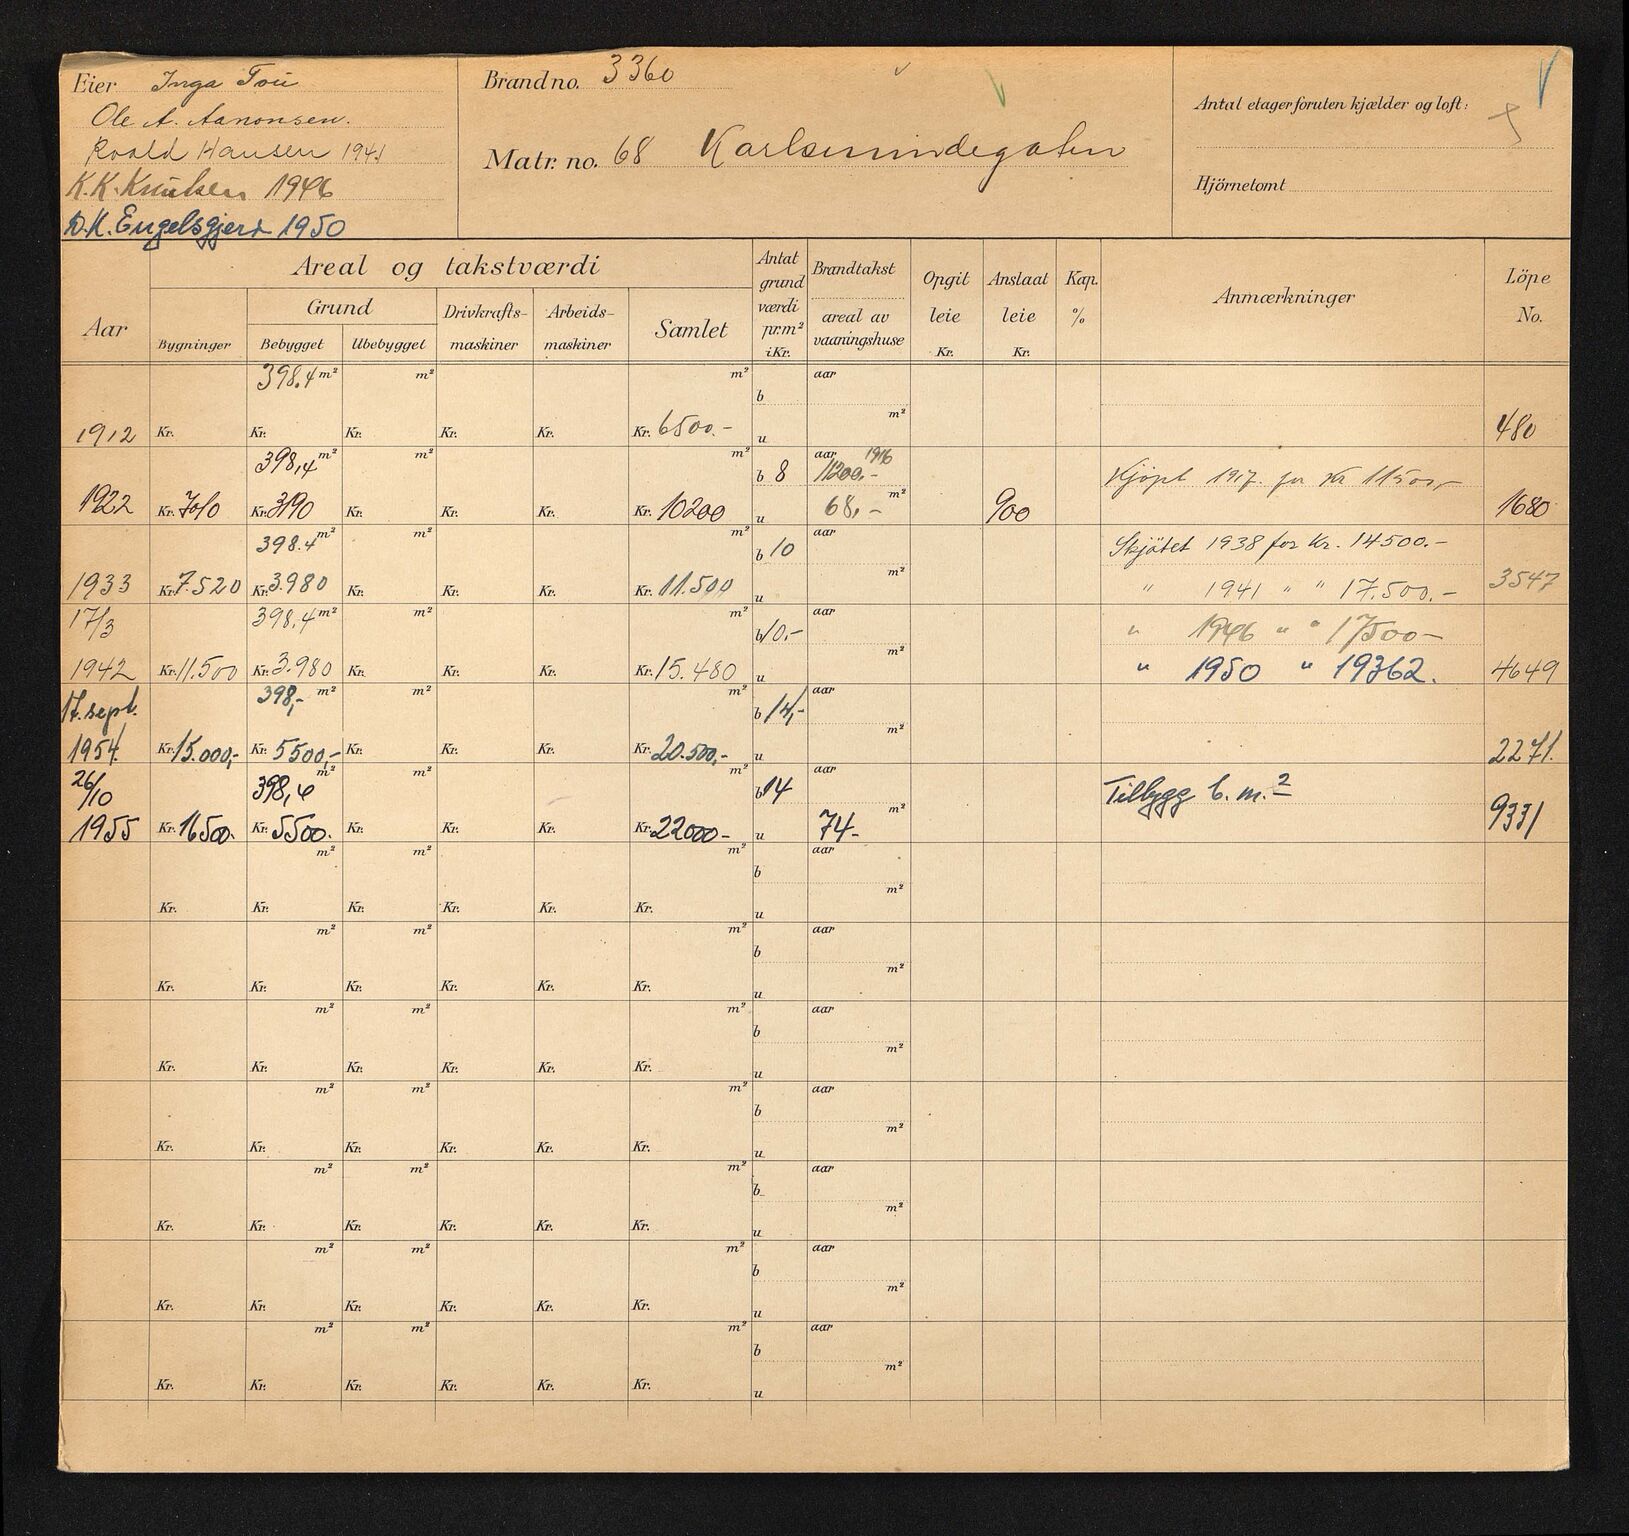 Eier Inga Tou
Ole A. Aanonsen.
Roald Hansen 1941
K.K. Knutsen 1946
D.K. Engelsgjerd 1950
Brandno. 3360
Matr. no. 68 Karlsminnegaten
Antal etager foruten kjælder og loft:
Hjörnetomt
Areal og takstværdi
Aar
Grund
Bygninger Bebygget Ubebygget
Drivkrafts-maskiner
Arbeids-maskiner
Samlet
Antat grund værdi pr.m² i Kr.
Brandtakst
areal av vaaningshuse
Opgit leie Kr.
Anslaat leie Kr.
Kap. %
Anmærkninger
Löpe No.
398.4 m² m² m² b aar
m²
1912 Kr. Kr. Kr. Kr. Kr. Kr. 6500.- u 480
398,4 m² m² m² b 8 aar 1916 11200.-
Kjöpt 1917. for Kr 11500,-
1922 Kr. 7010 Kr. 3190 Kr. Kr. Kr. Kr. 10200 u 68,- m² 900 1680
398.4 m² m² m² b 10 aar Skjötet 1938 for Kr. 14500.-
1933 Kr. 7.520 Kr. 3.980 Kr. Kr. Kr. Kr. 11.500 u m² " 1941 " " 17.500.- 3547
17/3 398,4 m² m² m² b 10.- aar " 1946 " " 17500-
1942 Kr. 11.500 Kr. 3.980 Kr. Kr. Kr. Kr. 15.480 u m² " 1950 " 19362. 4649
17. sept. 398,- m² m² m² b 14,- aar
1954. Kr. 15.000,- Kr. 5500,- Kr. Kr. Kr. Kr. 20.500,- u m² 2271.
26/10 398,4 m² m² m² b 14 aar Tilbygg 6. m.²
1955 Kr. 16500. Kr. 5500. Kr. Kr. Kr. Kr. 22000- u 74- m² 9331
m² m² m² b aar
Kr. Kr. Kr. Kr. Kr. Kr. u m²
m² m² m² b aar
Kr. Kr. Kr. Kr. Kr. Kr. u m²
m² m² m² b aar
Kr. Kr. Kr. Kr. Kr. Kr. u m²
m² m² m² b aar
Kr. Kr. Kr. Kr. Kr. Kr. u m²
m² m² m² b aar
Kr. Kr. Kr. Kr. Kr. Kr. u m²
m² m² m² b aar
Kr. Kr. Kr. Kr. Kr. Kr. u m²
m² m² m² b aar
Kr. Kr. Kr. Kr. Kr. Kr. u m²